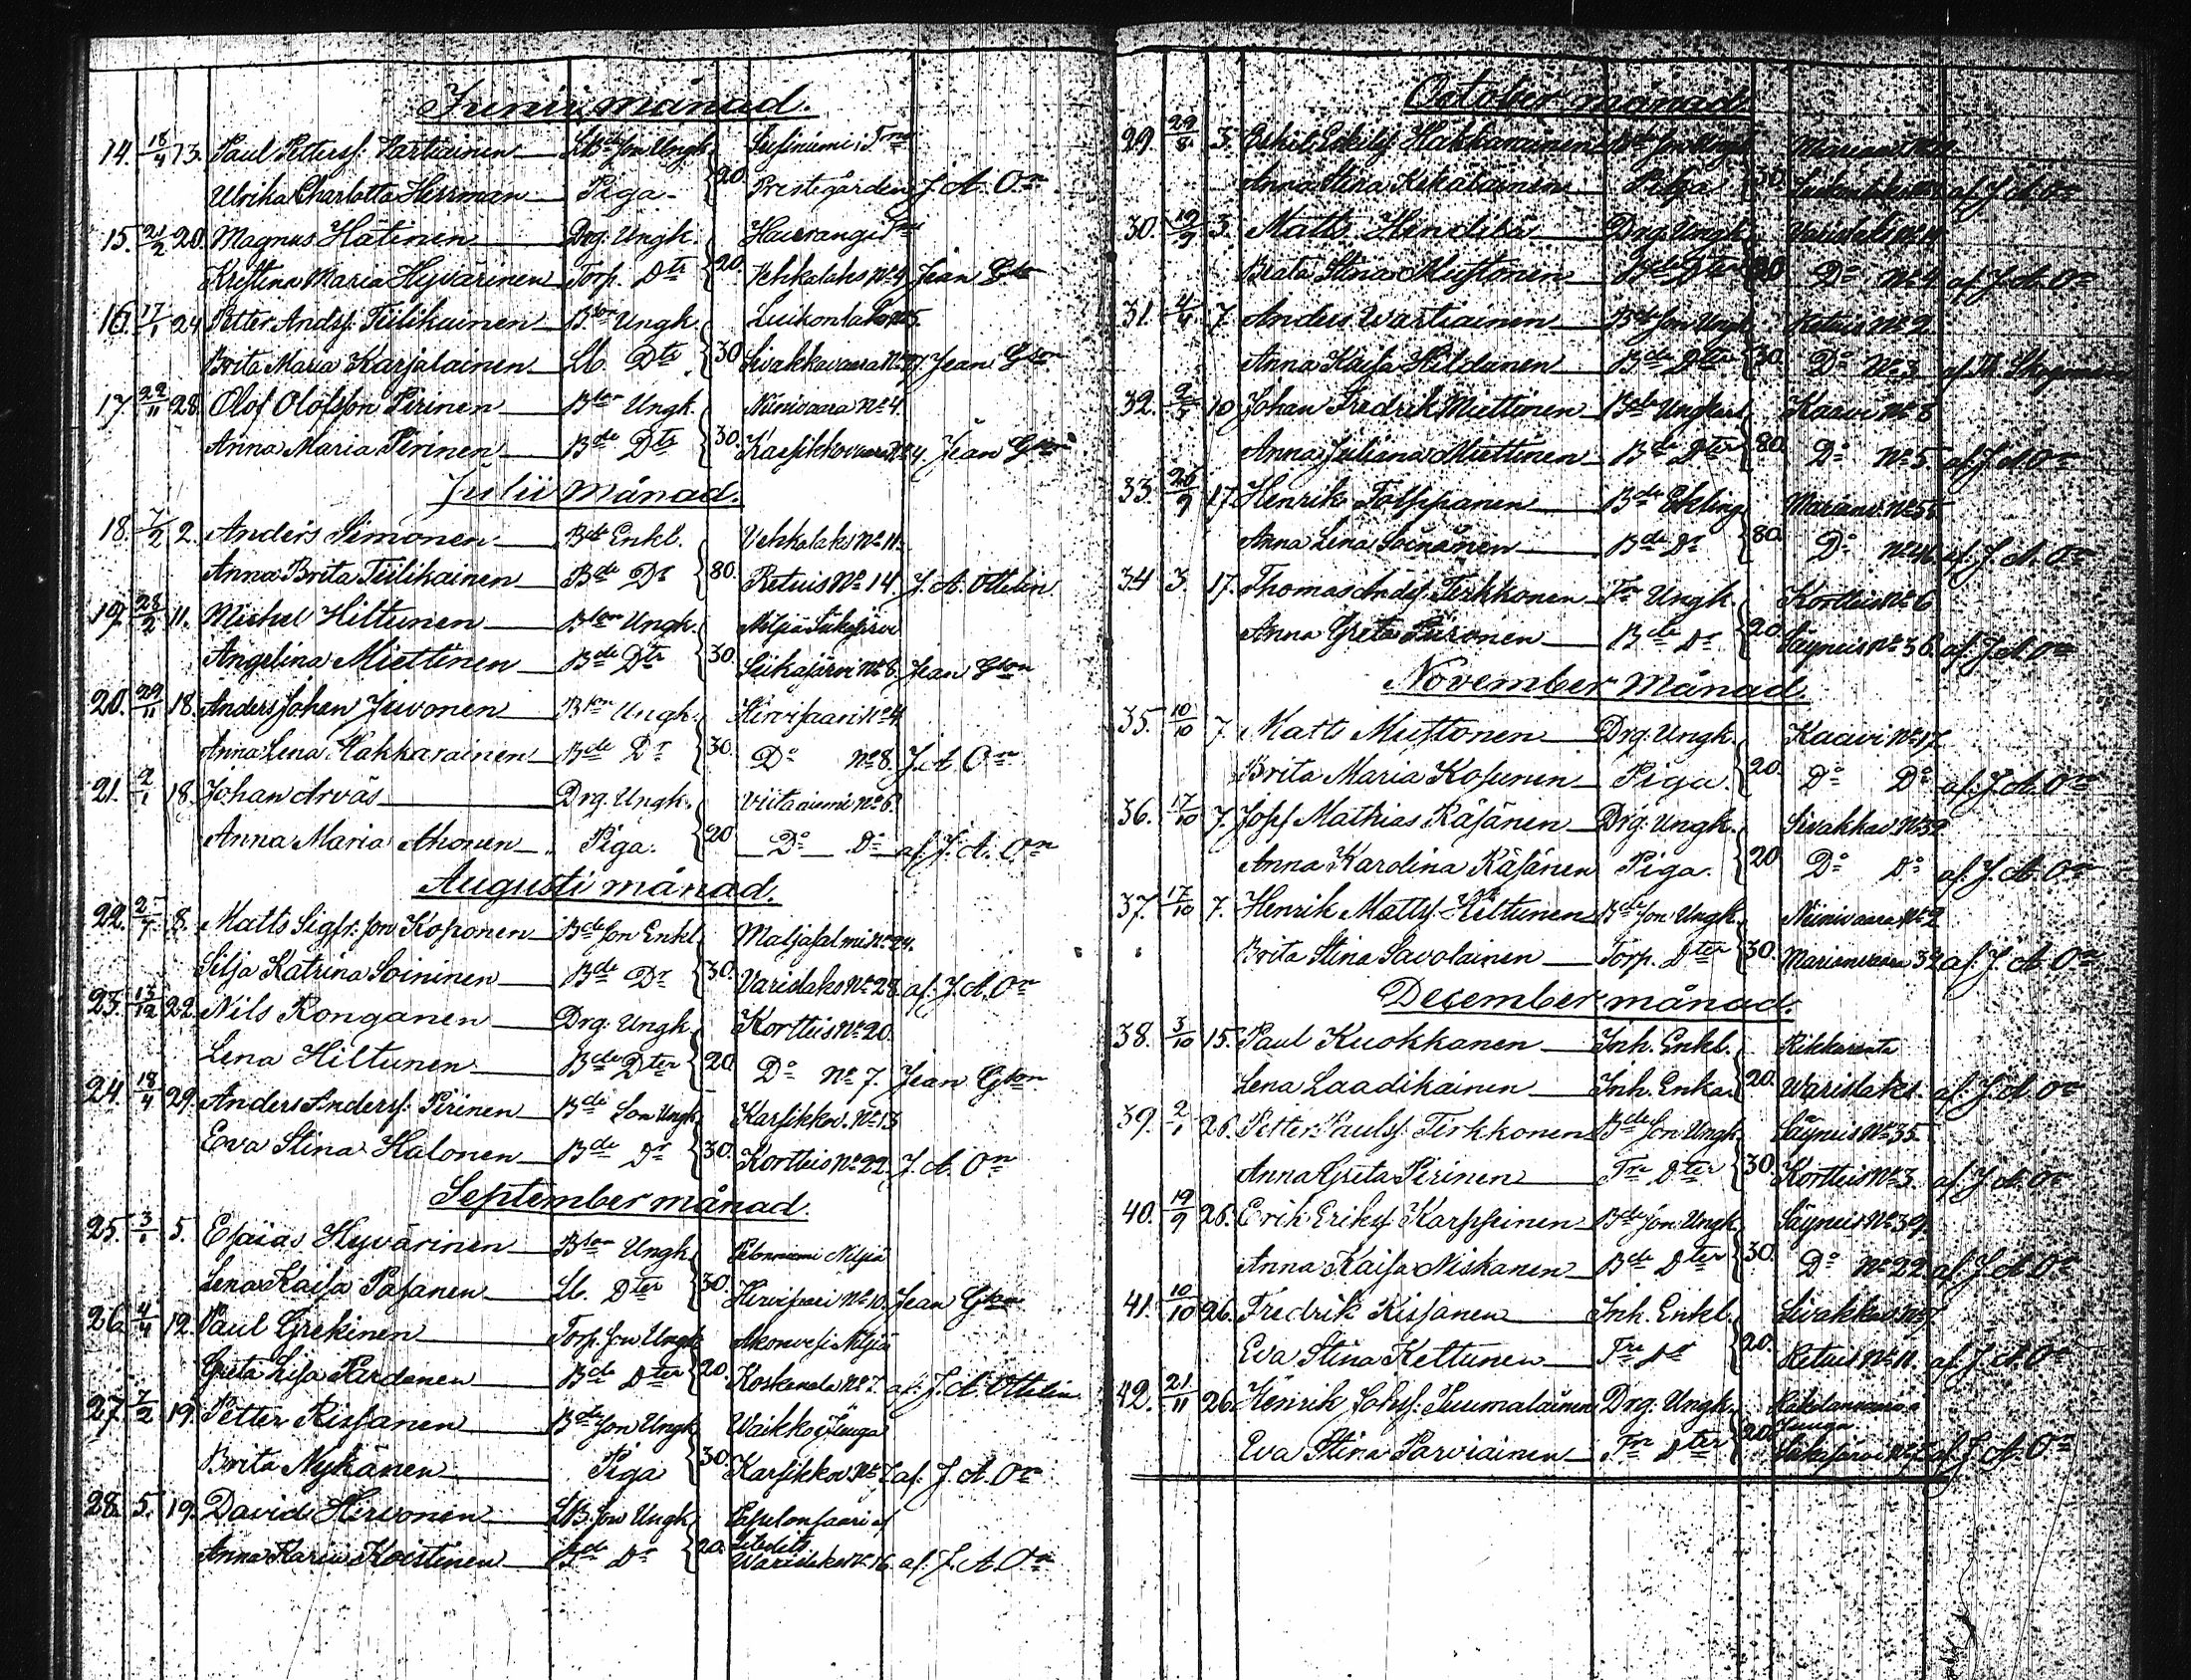 Junii månad.
14. 18/4 13. Paul Petterss. Vartiainen Son Ungk. Susiniemi
Ulrika Charlotta Herrman Piga 20. Prestegården J. A. On
15. 21/2 20. Magnus Hätinen Drg. Ungk. Haurangi
Kristina Maria Hyvärinen Torp. Dtr 20. Vehkalaks No 4 Jean Gson
16. 17/1 24. Petter Andss. Tiilikainen Bson Ungk. Luikonlaks
Brita Maria Karjalainen Lb. Dtr 30. Sivakkavaara No Jean Gson
17. 22/11 28. Olof Olofsson Pirinen Bson Ungk. Niinivaara No 4.
Anna Maria Pirinen Bde Dtr 30. Karsikkovaara No 4. Jean Gson
Julii Månad.
18. 7/2 2. Anders Simonen Bde Enkl. Vehkalaks No 11.
Anna Brita Tiilikainen Bde Dr 80. Retuis No 14. J. A. Ottelin
19. 28/2 11. Michel Hiltunen Bson Ungk. Nilsiä
Angelina Miettinen Bde Dtr 30. Siikajärvi No 8. Jean Gson
20. 29/11 18. Anders Johan Juvonen Bson Ungk. Hirvisaari No 4.
Anna Lena Hakkarainen Bde Dr 30. Do No 8. J. A. On
21. 2/1 18. Johan Arväs Drg. Ungk. Viitaniemi No 6.
Anna Maria Ahonen Piga. 20 Do Do af. J. A. On
Augusti månad.
22. 2/7 8. Matts Sigfr. son Koponen Bde son Enkl. Maljasalmi No 24.
Silja Katrina Soininen Bde Dr 30. Varislaks No 28. af. J. A. On
23. 13/12 22. Nils Ronganen Drg. Ungk. Kortteis No 20.
Lena Hiltunen Bde Dter 20. Do No 7. Jean Gson
24. 18/4 29. Anders Anderss. Pirinen Bde Son Ungk. Karsikkov. No 13
Eva Stina Halonen Bde Dr 30. Kortteis No 22. J. A. On
September månad.
25. 3/1 5. Esaias Hyvärinen Bson Ungk. Nilsiä
Lena Kaisa Pasanen Lb. Dter 30. Hirvisaari No 10. Jean Gson
26. 4/4 12. Paul Grekinen Torp. son Ungk. Akonvesi Nilsiä
Greta Lisa Pardanen Bde Dter 20. No 7. af. J. A. Ottelin
27. 7/2 19. Petter Rissanen Bde son Ungk. Waikko Juuga
Brita Nykänen Piga 30. Karsikkov. No 7 af. J. A. On
28. 5. 19. David Hirvonen LB. son Ungk. Libelits
Anna Karin Koistinen Bde Dr 20. Warislaks No 16 af. J. A. On
October månad
29. 29/8 3. Eskil Eskilss. Hakkarainen Bde son Ungk. Marianv.
Anna Stina Kekäläinen Piga 30. af J. A. On
30. 19/9 3. Matts Hendilä Drg. Ungk. Varislaks No 4
Beata Stina Mustonen Bde Dter 20 Do No 4. af. J. A. On
31. 4/4 7. Anders Wartiainen Bde son Ungk Retuis No 2
Anna Kaisa Hildunen Bde Dter 30. Do No 3
32. 2/5 10 Johan Fredrik Miettinen Bde Ungkarl Kaavi No 8
Anna Juliana Miettinen Bde Dter 80. Do No 5 af. J. A. On
33. 26/9 17. Henrik Tolppanen Bde Ekling Marianv. No 58
Anna Lena Soinänen Bde Dr 80. Do af. J. A. On
34 3. 17. Thomas Andss. Tirkkonen Fr Ungk. Kortteis No 6
Anna Greta Piironen Bde Dr 20. Säyneis No 36. af. J. A. On
November Månad.
35. 10/10 7. Matts Mustonen Drg. Ungk. Kaavi No 17.
Brita Maria Kosunen Piga. 20. Do Do af. J. A. On
36. 17/10 7. Josef Mathias Räsänen Drg. Ungk. Sivakkav. No 32
Anna Karolina Räsänen Piga. 20 Do Do af J. A. On
37. 17/10 7. Henrik Matts. Kiltunen Bde son Ungk. Niinivaara No 2
Brita Stina Savolainen Torp. Dter 30. Marianvaara 32 af. J. A. On
December månad.
38. 3/10 15. Paul Kuokkanen Inh. Enkl. Rikkaranta
Lena Laadikainen Inh. Enka. 20. Warislaks. af. J. A On
39. 2/1 26. Petter Paulss. Tirkkonen Bde son Ungk. Säyneis No 35.
Anna Greta Pirinen Fr Dter 30. Kortteis No 3. af. J. A. On
40. 19/9 26. Erik Erikss. Karppinen Bde son Ungk Säyneis No 39.
Anna Kaisa Niskanen Bde Dter 30. Do No 22. af. J. A. On
41. 10/10 26. Fredrik Rissanen Inh. Enkl. Sivakkav. No 7
Eva Stina Keltunen Fr Dr 20. Retuis No 11. af. J. A. On
42. 21/11 26. Henrik Johss. Tuumaläinen Drg. Ungk. Juuga
Eva Stina Parviainen Fr Dter 20. af J. A. On